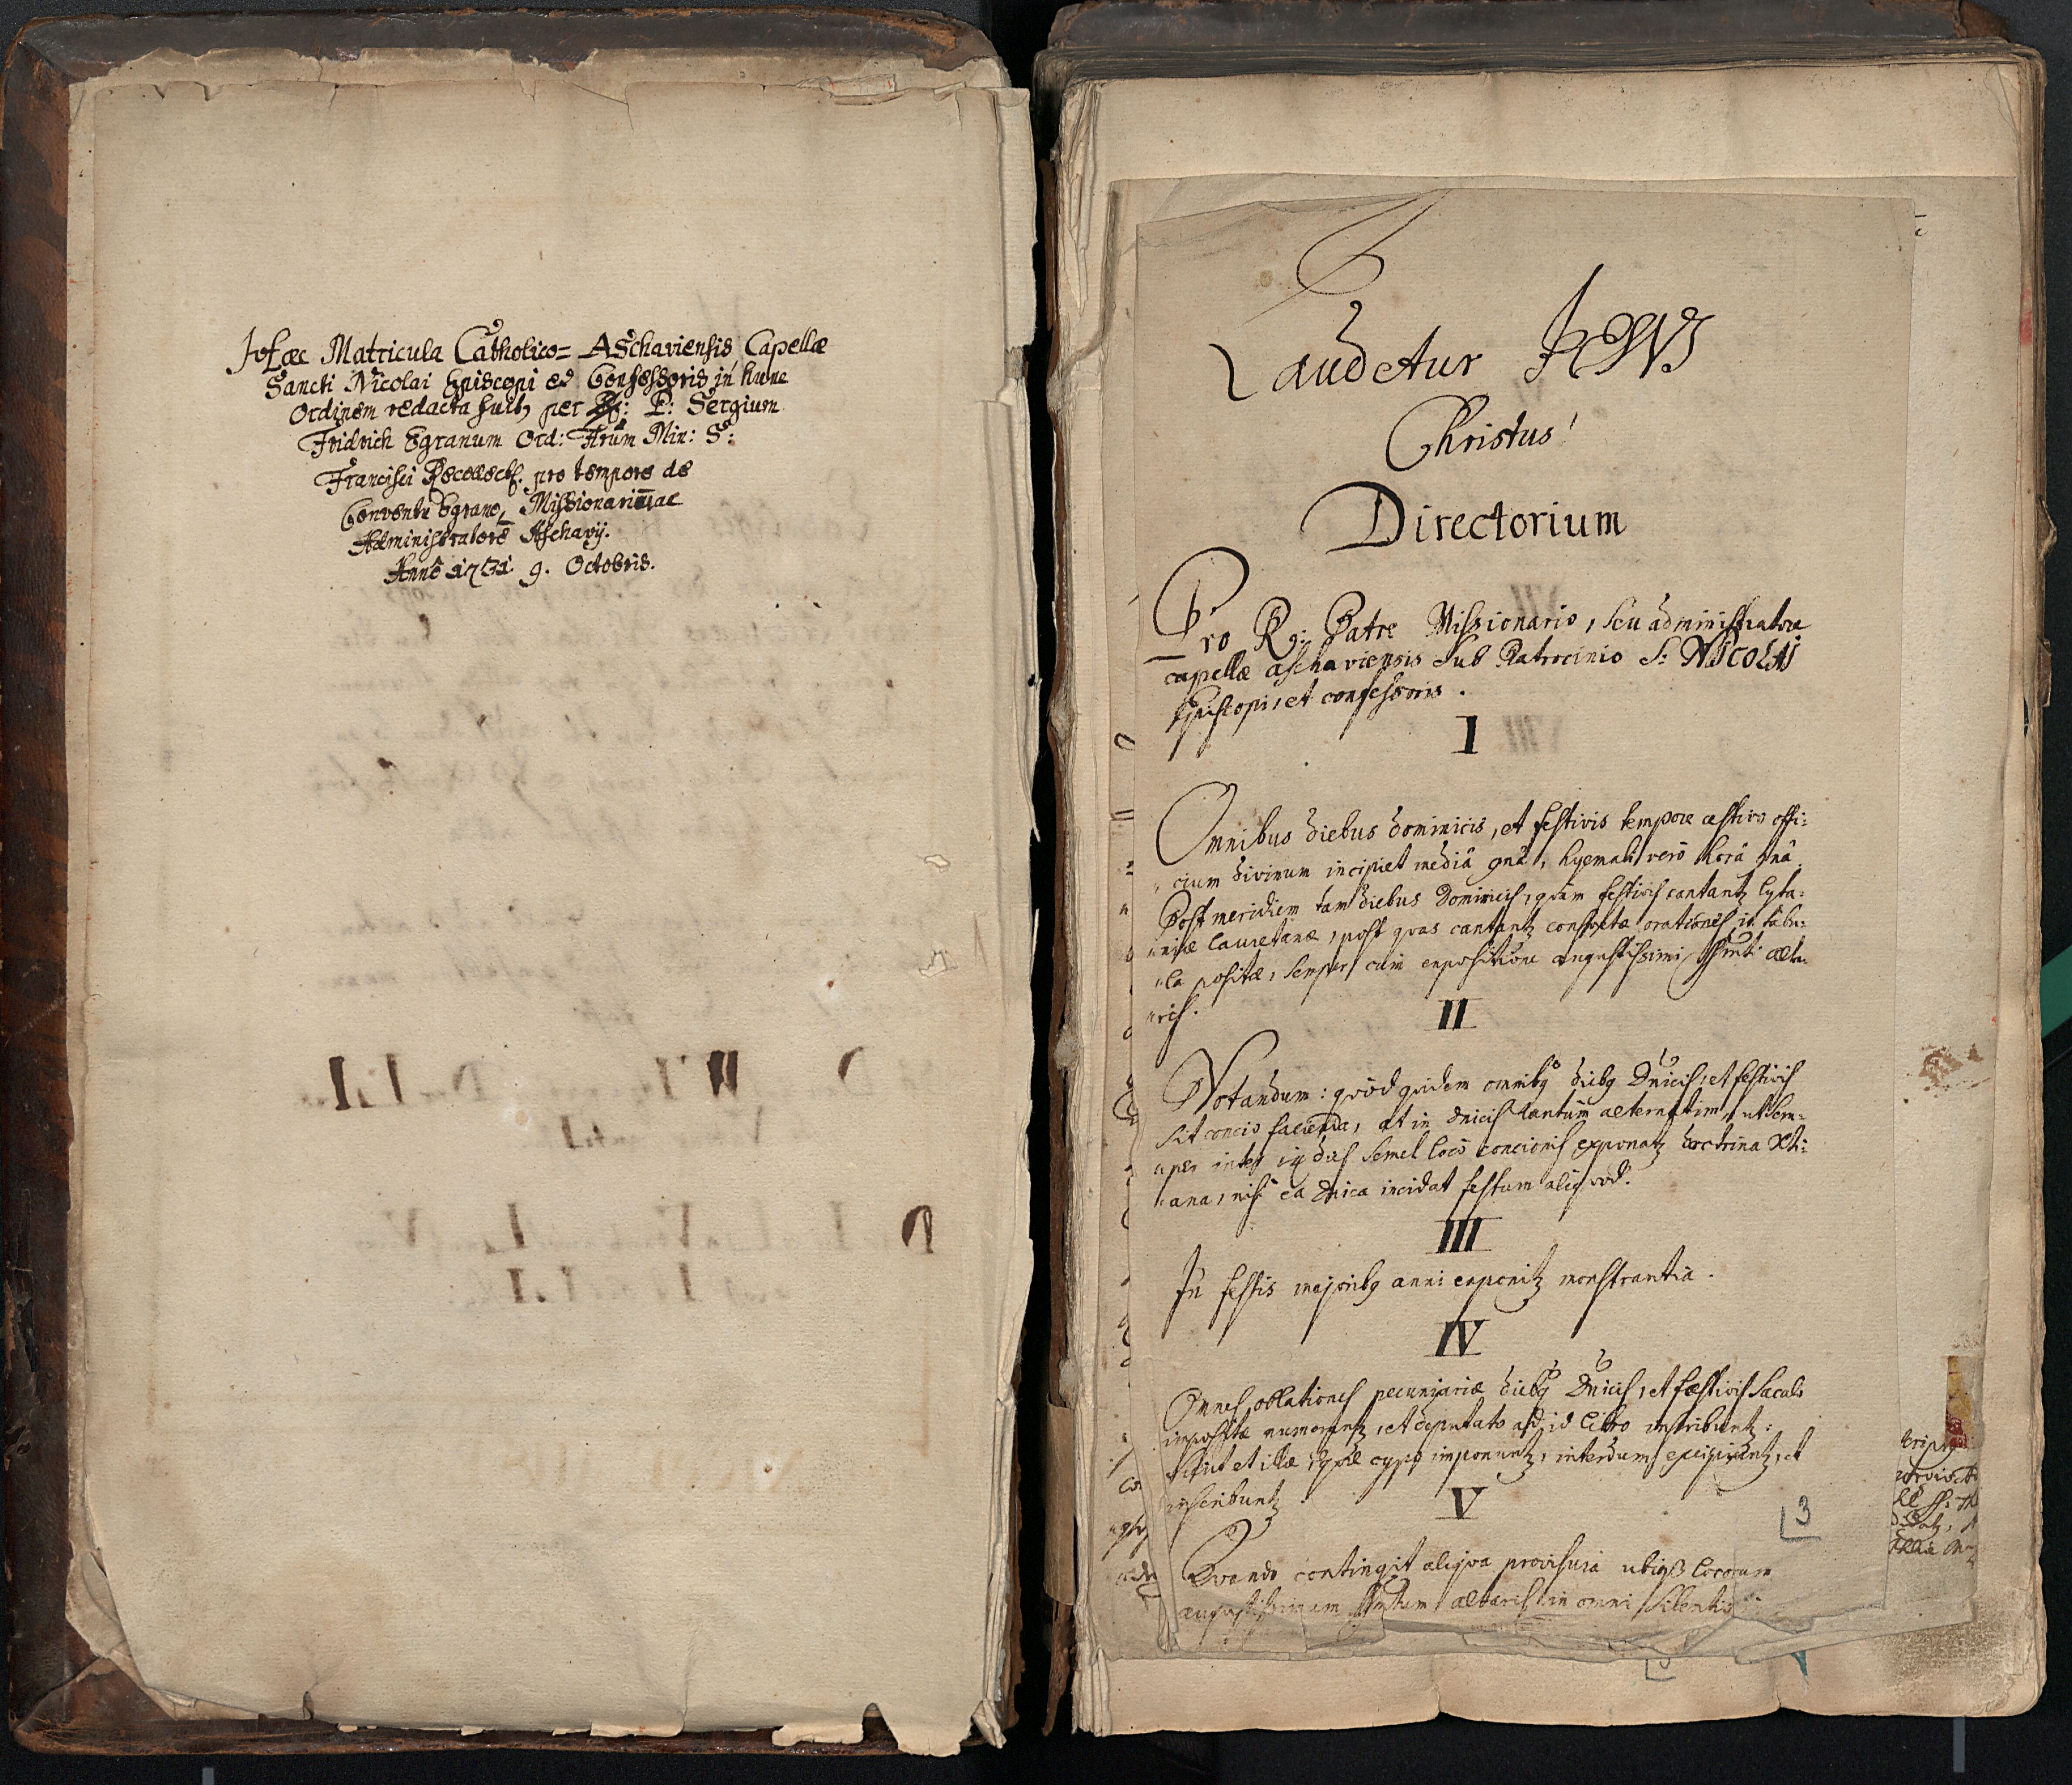 Hæc Matricula Catholico= Aschaviensis Capellæ
Sancti Nicolai Episcopi et Confessoris in hunc
Ordinem redacta fuit, per P: Sergium
Fridrich Egranum Ord: Frũm Min: S:
Francisci Recollect. pro tempore de
Conventu Egrano, Missionarium ac
Administratorē Aschavij.
Anno 1731 9. Octobris.
Laudetur JESUS
Christus!
Directorium
Pro R: Patre Missionario, seu administratore
capellæ aschaviensis sub Patrocinio S: NICOLAI
Episcopi, et confessoris.
I
Omnibus diebus dominicis, et festivis tempore æstivo offi:
cium divinum incipiet mediâ 9nâ, hyemali verò horâ 9nâ
Post meridiem tam diebus Dominicis, quàm festivis cantantz lyta:
niæ lauretanæ, post quas cantantz consuetæ orationes in tabu:
la positæ, semper cum expositione augustissimi Ssmti alta:
ris.
II
Notandum: quòd quidem omnibg diebg Dnicis, et festivis
sit concio facienda, at in dnicis tantùm alternatim, ut sem:
per inter 14 dies semel loco concionis exponatz doctrina Xti:
ana, nisi eâ Dnica incidat festum aliquod.
III
In festis majoribg anni exponitz monstrantia.
IV
Omnes oblationes pecuniariæ diebg Dnicis, et festivis saculo
impositæ numerantz, et deputato ad id libro inscribuntz:
sicut et illæ, quæ cyppo imponuntz, interdum excipiuntz, et
inscribuntz
V
3
Quando contingit aliqva provisura locorum
augustissimum altaris in omni silentio